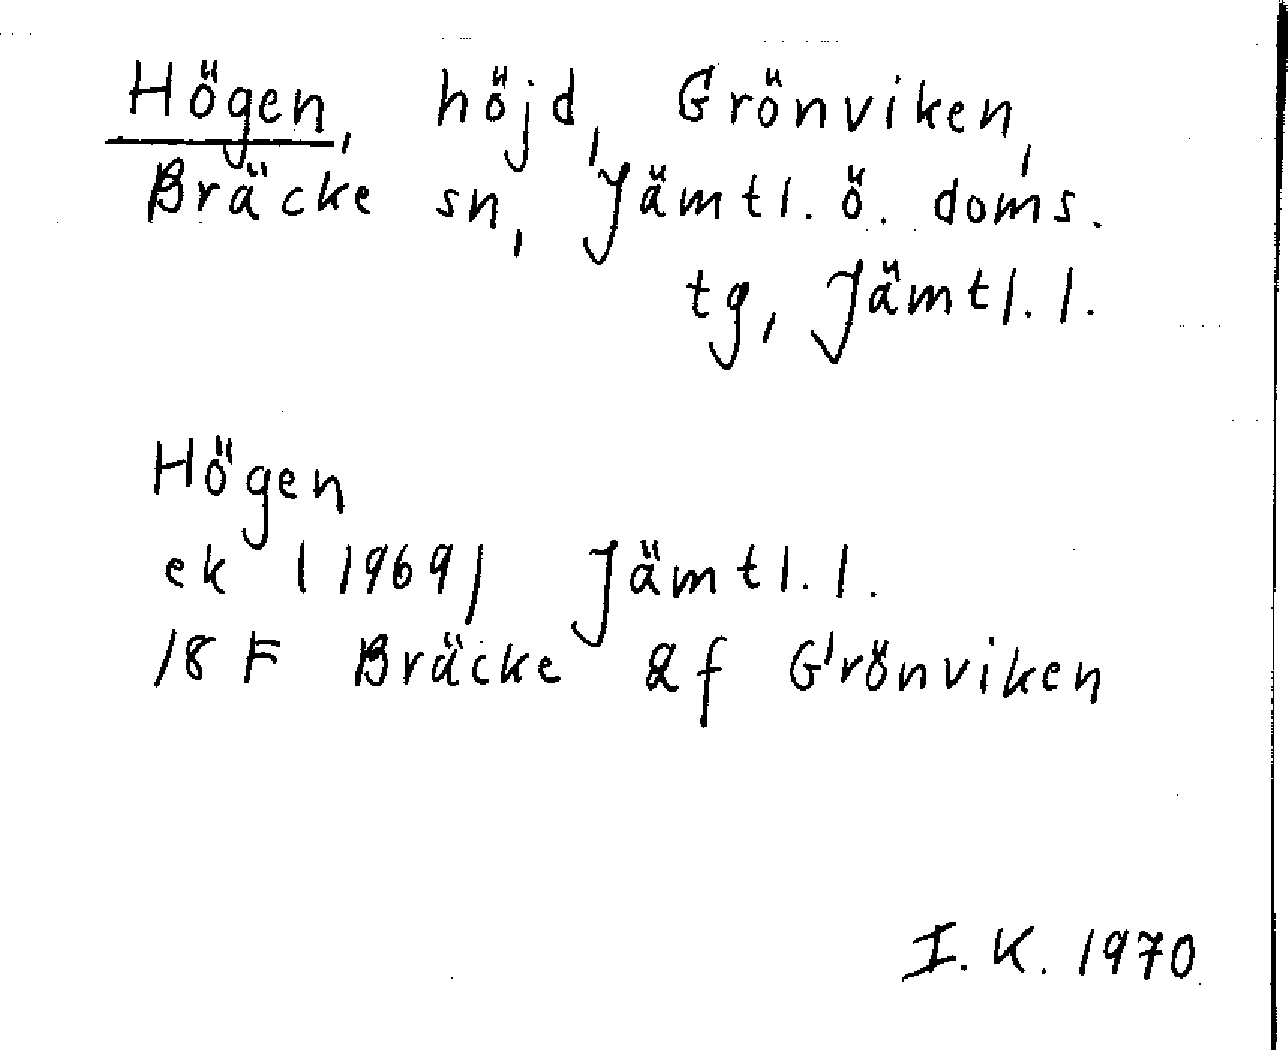 Högen, höjd, Grönviken,
Bräcke sn, Jämtl. ö. doms.
tg, Jämtl. l.
Högen
ek (1969) Jämtl. l.
18 F Bräcke 2f Grönviken
I. K. 1970